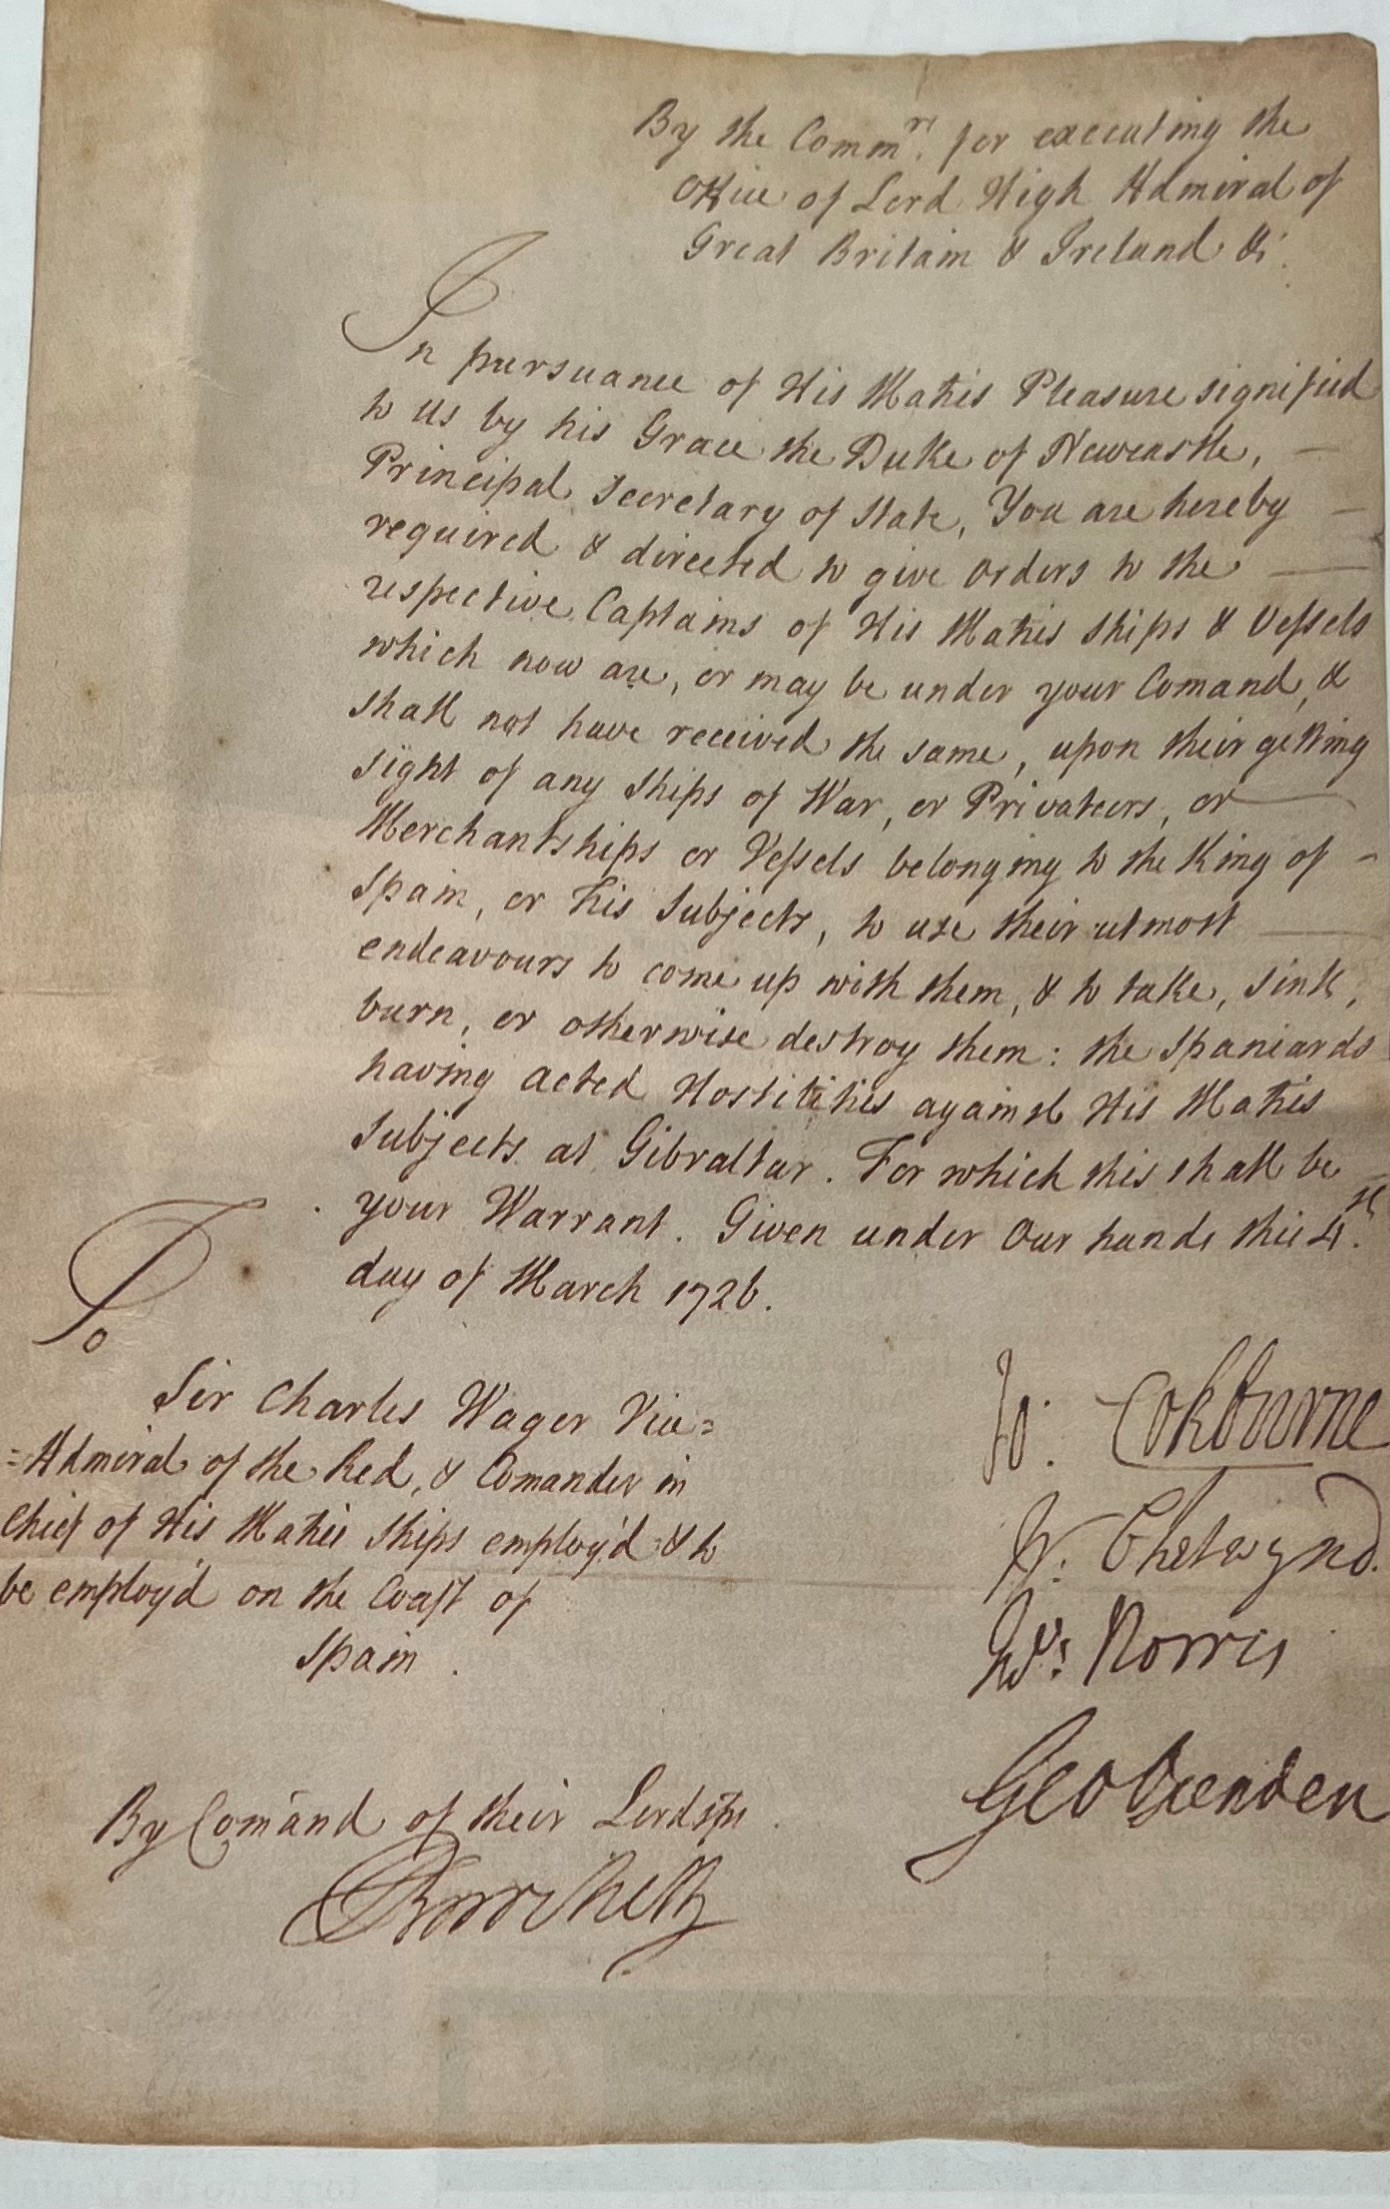 By the Comm.rs for executing the
Office of Lord High Admiral of
Great Britain & Ireland &c.
In pursuance of His Mat̃ies Pleasure signified
to us by his Grace the Duke of Newcastle,
Principal Secretary of State, You are hereby
required & directed to give orders to the
respective Captains of His Mat̃ies Ships & Vessels
which now are, or may be under your Comand, &
shall not have received the same, upon their getting
sight of any Ships of War, or Privateers, or
Merchantships or Vessels belonging to the King of
Spain, or his Subjects, to use their utmost
endeavours to come up with them, & to take, sink,
burn, or otherwise destroy them: the Spaniards
having acted Hostilities against His Mat̃ies
Subjects at Gibraltar. For which this shall be
your Warrant. Given under our hands this 4.th
day of March 1726.
To
Sir Charles Wager Vice=
=Admiral of the Red, & Comander in
Chief of His Mat̃ies Ships employ'd & to
be employ'd on the Coast of
Spain.
Jo: Cokburne
W: Chetwynd.
Jon: Norris
Geo Oxenden
By Com̃and of their Lordsps
J Burchett